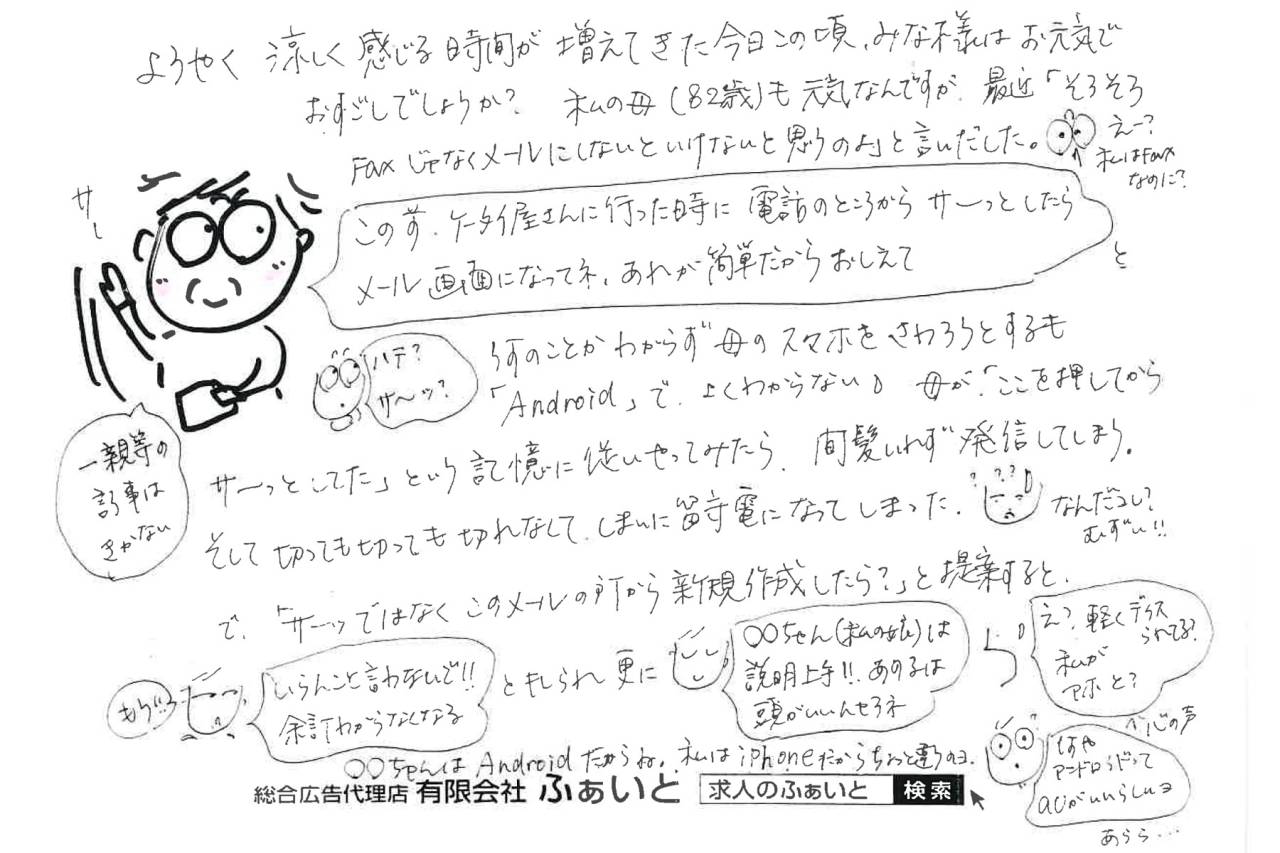 ようやく 涼しく 感じる 時間が 増えてきた今日この頃、みな様は お元気で
おすごしでしょうか? 私の母(82歳)も 元気なんですが、最近「そろそろ
Faxじゃなくメールにしないといけないと思うのよ」と言いだした。
えー?
私はFax
なのに?
サー
この前、ケータイ屋さんに行った時に 電話のところから サーっとしたら
メール画面になってネ、あれが簡単だからおしえて
と
ハテ?
サーッ?
何のことかわからず 母の スマホを さわろうとするも
「Android」で、よくわからない。 母が「ここを押してから
サーっとしてた」という 記憶に従いやってみたら、間髪いれず 発信してしまう。
そして 切っても切っても 切れなくして、しまいに留守電になって しまった。
???
なんだコレ?
むずい!!
一親等の
記事は
きかない
で、「サーッではなく このメールの所から 新規作成したら?」と提案すると、
もう!!
いらんこと言わないで!!
余計わからなくなる
と叱られ 更に
〇〇ちゃん(私の娘)は
説明上手!! あの子は
頭がいいんやろネ
え? 軽くディスられてる?
私が
アホと?
心の声
〇〇ちゃんは Androidだからね。私は iPhoneだからちょっと違うのヨ。
アンドロイドって
auがいいらしいヨ
あらら…
総合広告代理店 有限会社 ふぁいと 求人のふぁいと 検索